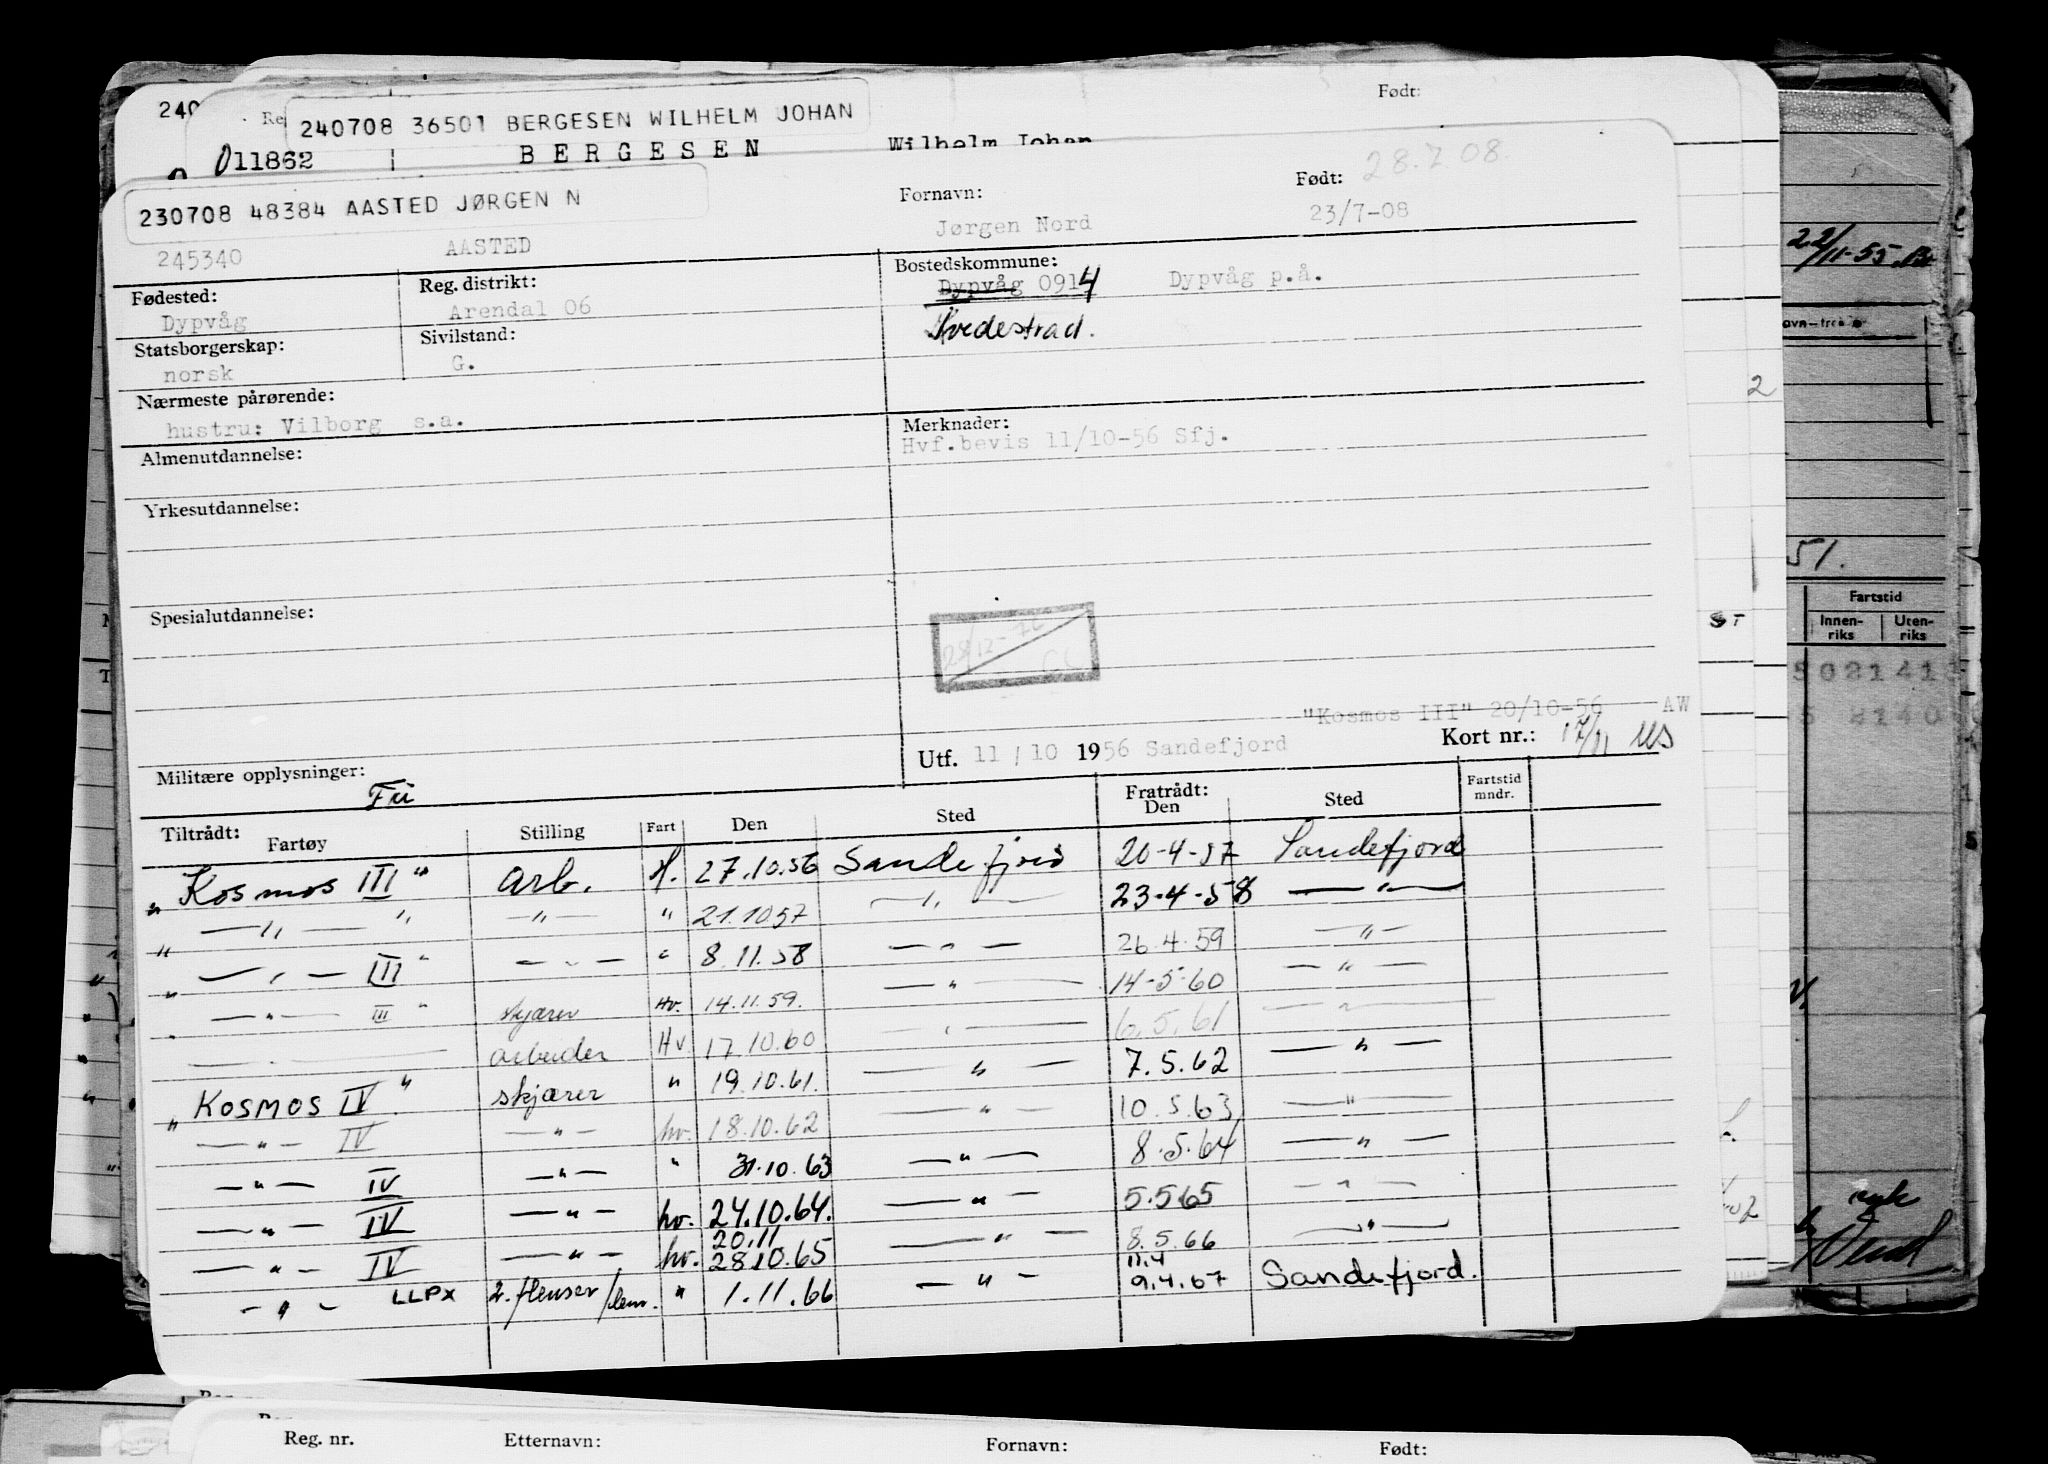 240
Re
240708 36501 BERGESEN WILHELM JOHAN
Født:
011862 BERGESEN Wilhelm Johan
28.7.08.
230708 48384 AASTED JØRGEN N
Fornavn: Født:
245340 AASTED Jørgen Nord 23/7-08
Fødested: Reg. distrikt: Bostedskommune:
Dypvåg Arendal 06 Dypvåg 0914 Dypvåg p.å.
Statsborgerskap: Sivilstand: Tvedestrad.
norsk G.
Nærmeste pårørende: Merknader:
hustru: Vilborg s.a. Hvf.bevis 11/10-56 Sfj.
Almenutdannelse:
Yrkesutdannelse:
Spesialutdannelse:
28/12-76
"Kosmos III" 20/10-56 AW
Militære opplysninger: Utf. 11/10 1956 Sandefjord Kort nr.: 17/11
Fri
Tiltrådt: Fratrådt: Fartstid
Fartøy Stilling Fart Den Sted Den Sted mndr.
"Kosmos III" Arb. H. 27.10.56 Sandefjord 20-4-57 Sandefjord
" —"— " —"— " 21.10.57 —"— 23-4-58 —"—
" —"— III" —"— " 8.11.58 —"— 26.4.59 —"—
" —"— III " skjærer Hv. 14.11.59. —"— 14-5-60 —"—
" —"— arbeider Hv 17.10.60 —"— 6.5.61 —"—
"KOSMOS IV" skjærer " 19.10.61. —"— 7.5.62 —"—
—"— IV —"— hv. 18.10.62 —"— 10.5.63 —"—
—"— IV —"— " 31.10.63 —"— 8.5.64 —"—
—"— IV —"— hv. 24.10.64. —"— 5.5.65 —"—
20.11
—"— IV —"— hv. 28.10.65 —"— 8.5.66 —"—
11.4
—"— LLPX 2. flenser/lem. " 1.11.66 —"— 9.4.67 Sandefjord.
22/11-55
2
51.
Fartstid
Innen-riks Uten-riks
ST
Reg. nr. Etternavn: Fornavn: Født: